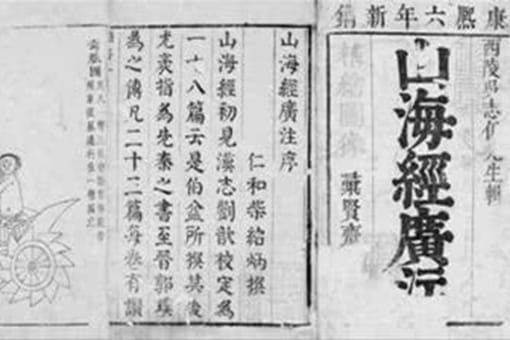 康熙六年新鐫
西陵吳志伊先生輯
山海經廣注
精繪圖像
彙賢齋
山海經廣注序
仁和柴紹炳撰
山海經初見漢志劉歆校定為
一十八篇云是伯益所撰其後
尤袤指為先秦之書至晉郭璞
為之傳凡二十三篇每卷有讃
奇肱國